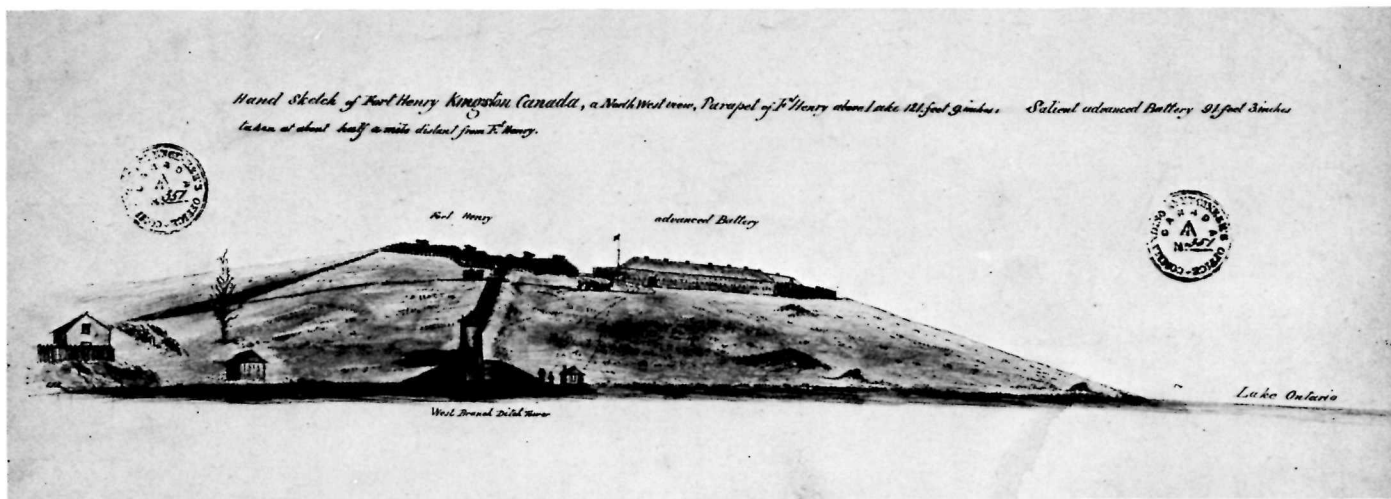 Hand Sketch of Fort Henry Kingston Canada, a North West view, Parapet of Ft Henry above Lake 121 feet 9 inches. Salient advanced Battery 91 feet 3 inches
taken at about half a mile distant from Ft Henry.
COMMANDING ENGINEER'S OFFICE
CANADA
No 357
COMMANDING ENGINEER'S OFFICE
CANADA
No 357
Fort Henry
advanced Battery
Lake Ontario
West Branch Ditch Tower